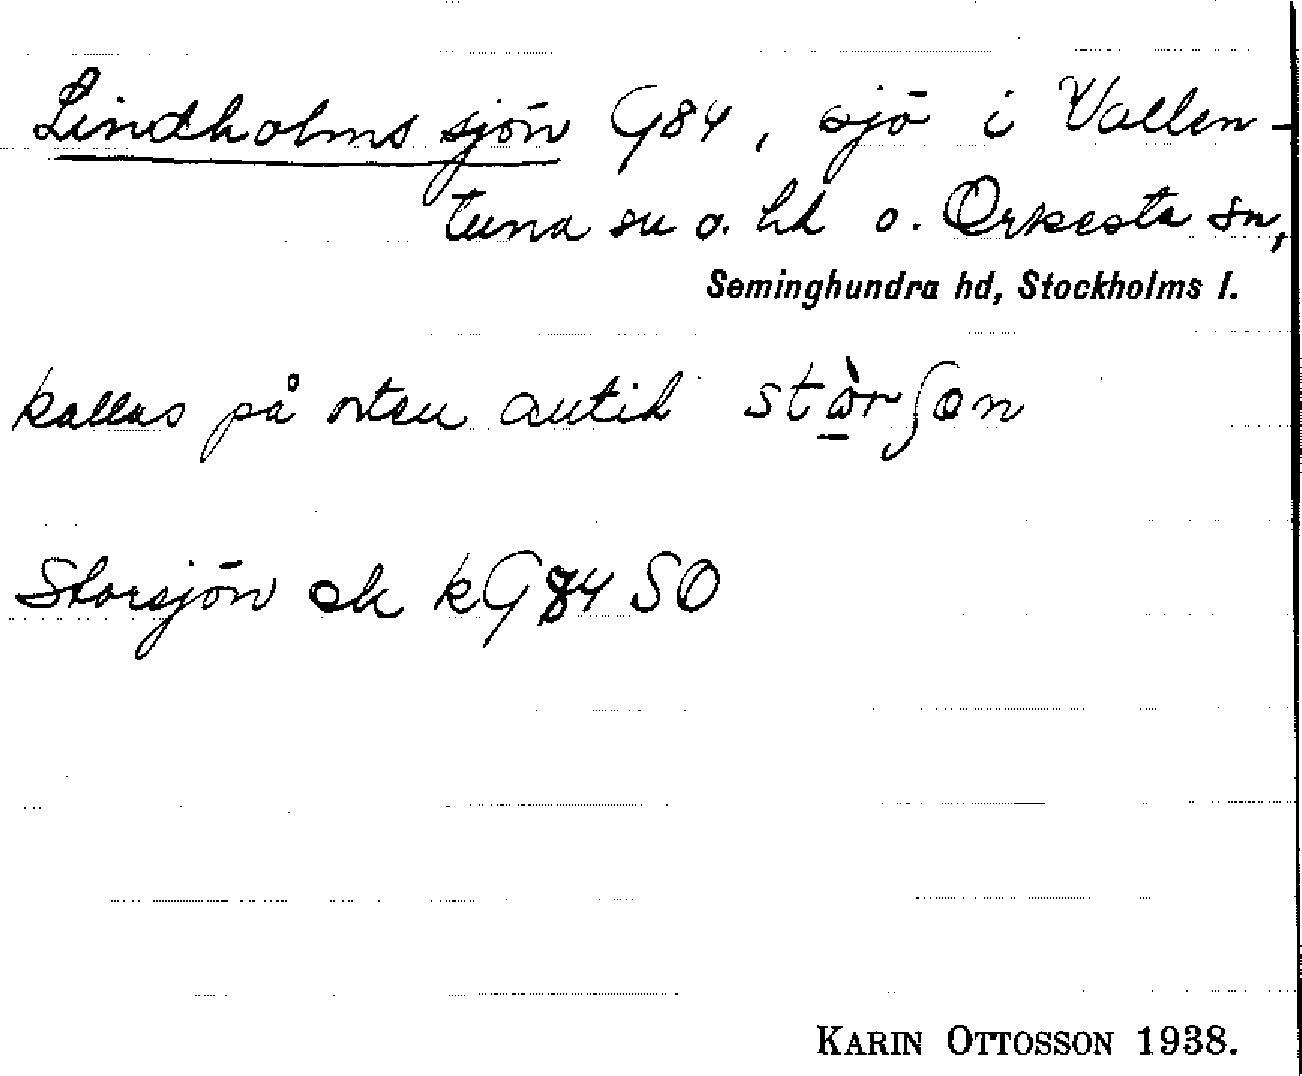 Lindholmssjön G84, sjö i Vallen-
tuna sn o. hd o. Orkesta sn,
Seminghundra hd, Stockholms l.
kallas på orten alltid
Storsjön ek kG84 SO
KARIN OTTOSSON 1938.